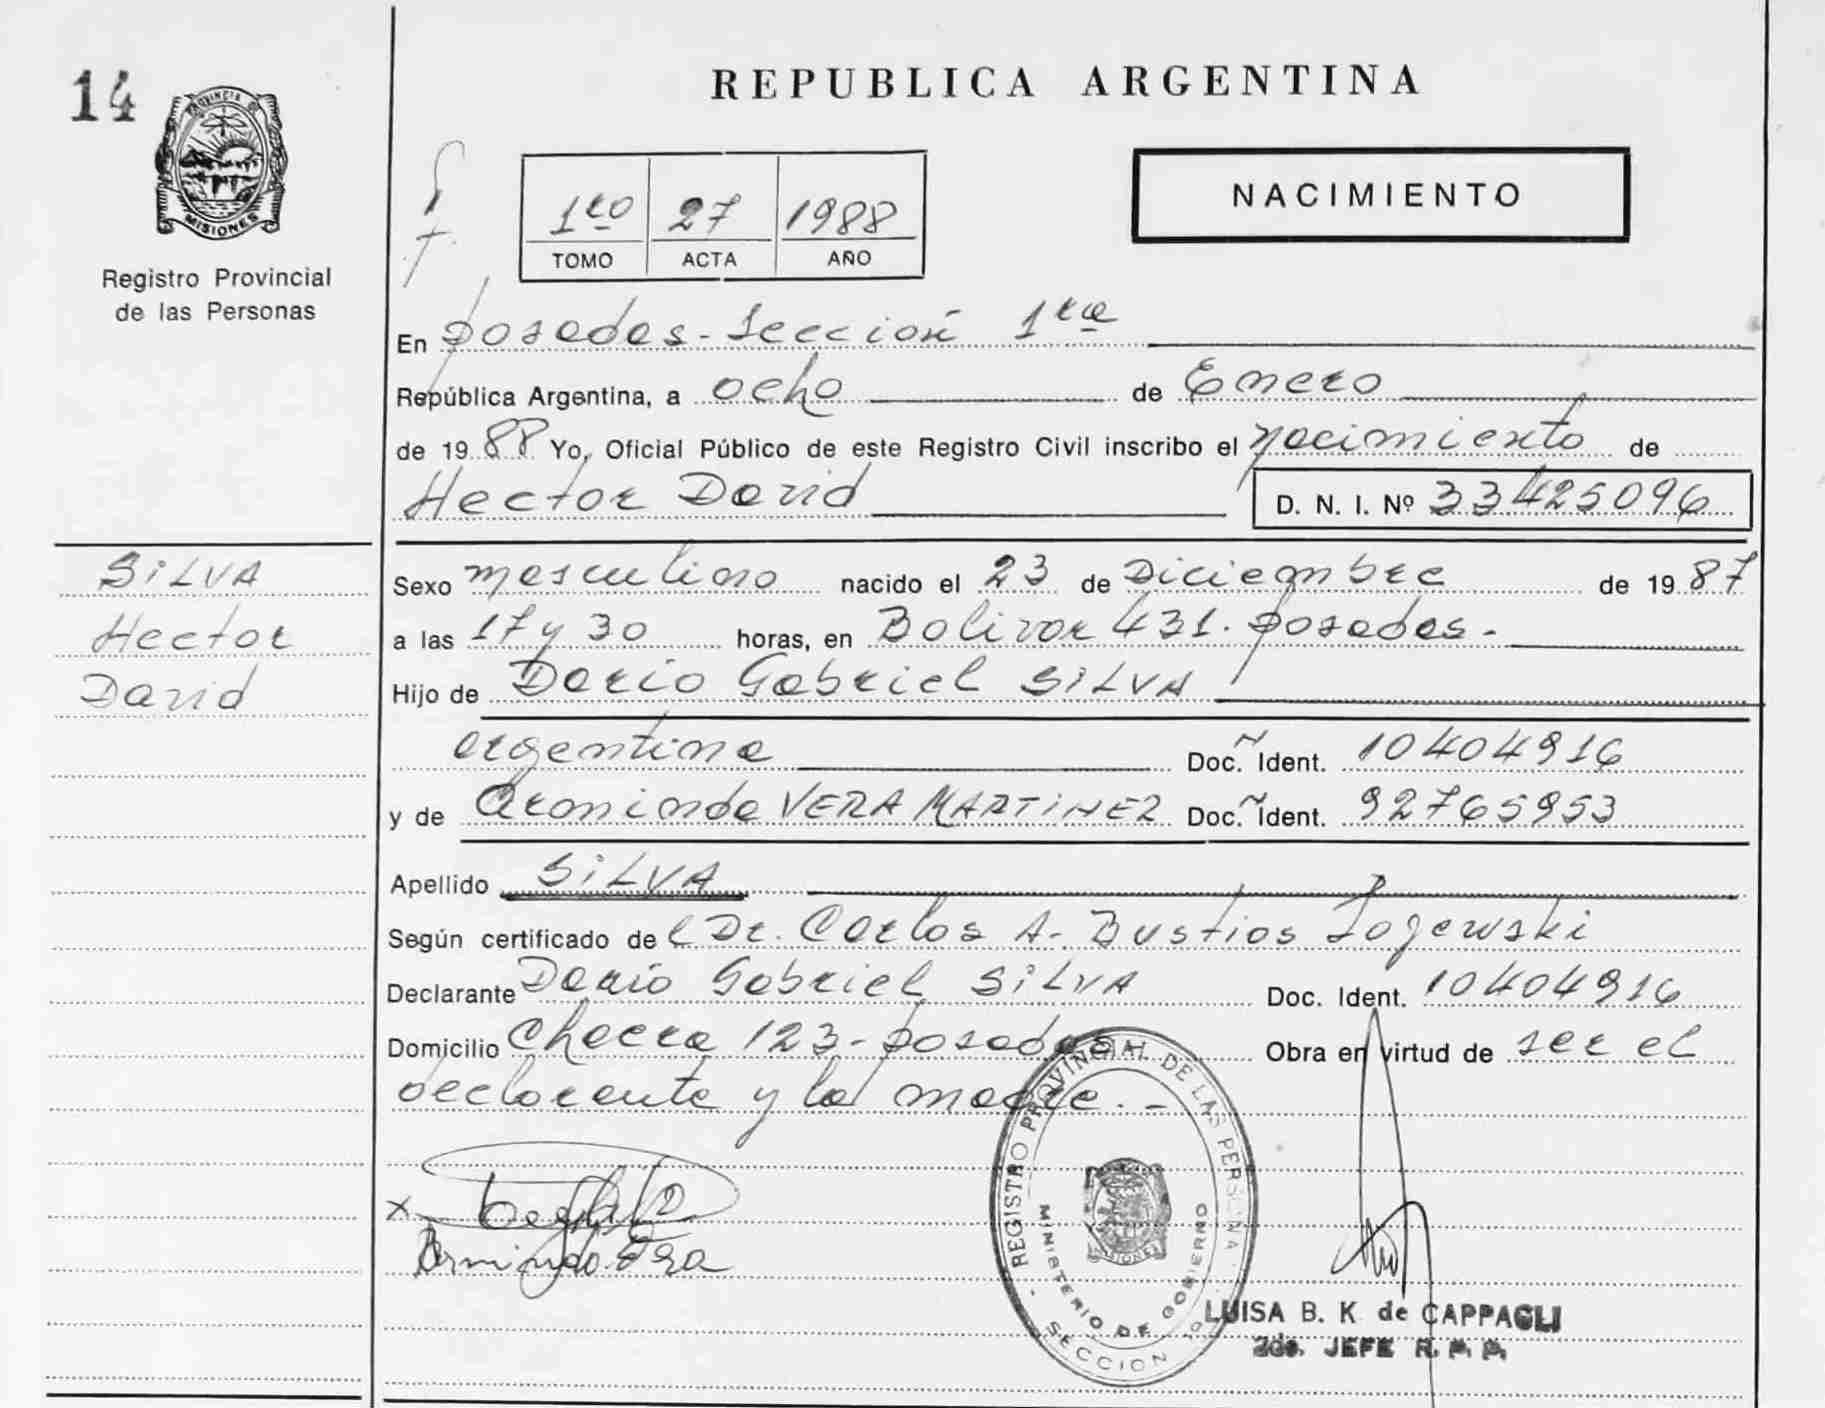 14
PROVINCIA DE
MISIONES
Registro Provincial
de las Personas
REPUBLICA ARGENTINA
NACIMIENTO
1ro 27 1988
TOMO ACTA AÑO
En Posadas - Sección 1ra
República Argentina, a ocho de Enero
de 1988 Yo, Oficial Público de este Registro Civil inscribo el nacimiento de
Hector David D. N. I. Nº 33425096
SILVA
Hector
David
Sexo masculino nacido el 23 de Diciembre de 1987
a las 17 y 30 horas, en Bolivar 431. Posadas.-
Hijo de Dario Gabriel SILVA
argentina Doc. Ident. 10404916
y de Arminda VERA MARTINEZ Doc. Ident. 92765953
Apellido SILVA
Según certificado del Dr. Carlos A. Bustios
Declarante Dario Gabriel SILVA Doc. Ident. 10404916
Domicilio Chacra 123 - Posadas Obra en virtud de ser el
declarante y la madre.-
x
REGISTRO PROVINCIAL DE LAS PERSONAS
MINISTERIO DE GOBIERNO
SECCION
LUISA B. K. de CAPPAGLI
2do. JEFE R. P. P.